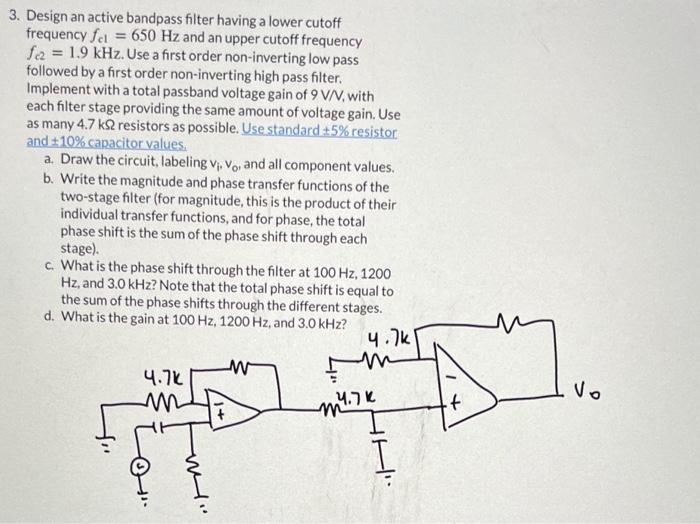 3. Design an active bandpass filter having a lower cutoff
frequency fc1 = 650 Hz and an upper cutoff frequency
fc2 = 1.9 kHz. Use a first order non-inverting low pass
followed by a first order non-inverting high pass filter.
Implement with a total passband voltage gain of 9 V/V, with
each filter stage providing the same amount of voltage gain. Use
as many 4.7 kΩ resistors as possible. Use standard ±5% resistor
and ±10% capacitor values.
a. Draw the circuit, labeling vi, vo, and all component values.
b. Write the magnitude and phase transfer functions of the
two-stage filter (for magnitude, this is the product of their
individual transfer functions, and for phase, the total
phase shift is the sum of the phase shift through each
stage).
c. What is the phase shift through the filter at 100 Hz, 1200
Hz, and 3.0 kHz? Note that the total phase shift is equal to
the sum of the phase shifts through the different stages.
d. What is the gain at 100 Hz, 1200 Hz, and 3.0 kHz?
4.7k
4.7k
4.7k
-
+
-
+
Vo